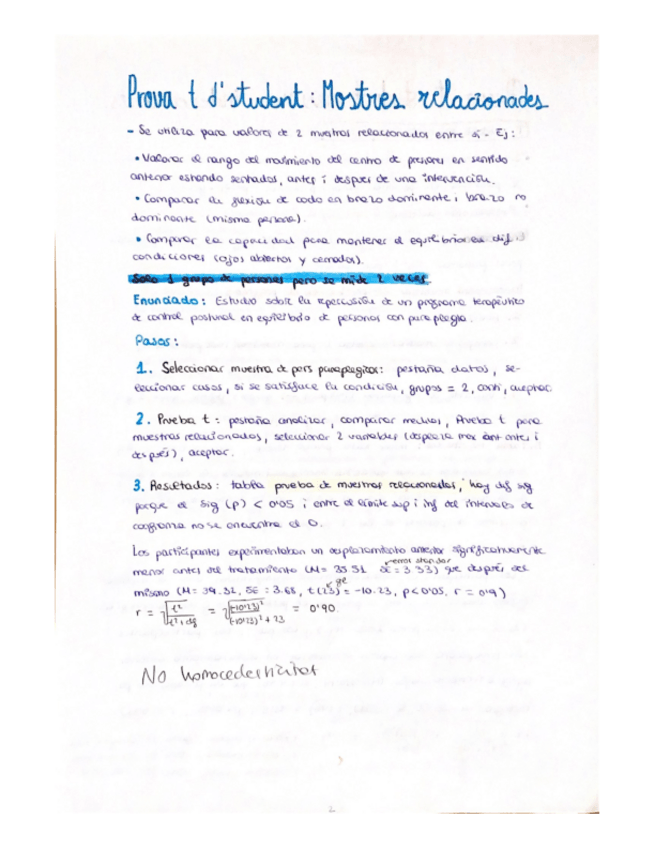 Prova t d'student: Mostres relacionades
- Se utiliza para valores de 2 muestras relacionadas entre sí - Ej:
• Valorar el rango del movimiento del centro de presiones en sentido
anterior estando sentados, antes i después de una intervención.
• Comparar la flexión de codo en brazo dominante i brazo no
dominante (misma persona).
• Comparar la capacidad para mantener el equilibrio en dif
condiciones (ojos abiertos y cerrados).
Solo 1 grupo de personas pero se mide 2 veces.
Enunciado: Estudio sobre la repercusión de un programa terapéutico
de control postural en equilibrio de personas con paraplegia.
Pasos:
1. Seleccionar muestra de pers parapléjicas: pestaña datos, se-
leccionar casos, si se satisface la condición, grupos = 2, conti, aceptar.
2. Prueba t: pestaña analizar, comparar medias, Prueba t para
muestras relacionadas, seleccionar 2 variables (despla max ant antes i
después), aceptar.
3. Resultados: tabla prueba de muestras relacionadas, hay dif sig
porque el Sig (p) < 0'05 i entre el límite sup i inf del intervalo de
confianza no se encuentra el 0.
Los participantes experimentaban un desplazamiento anterior significativamente
error standar
menor antes del tratamiento (M= 35 51 SE = 3.33) que después del
mismo (M= 39.32, SE = 3.68, t(23) = -10.23, p<0'05, r = 0'9)
r = √ t² / t² + dg = √ (-10'23)² / (-10'23)² + 23 = 0'90.
No homocedasticitat